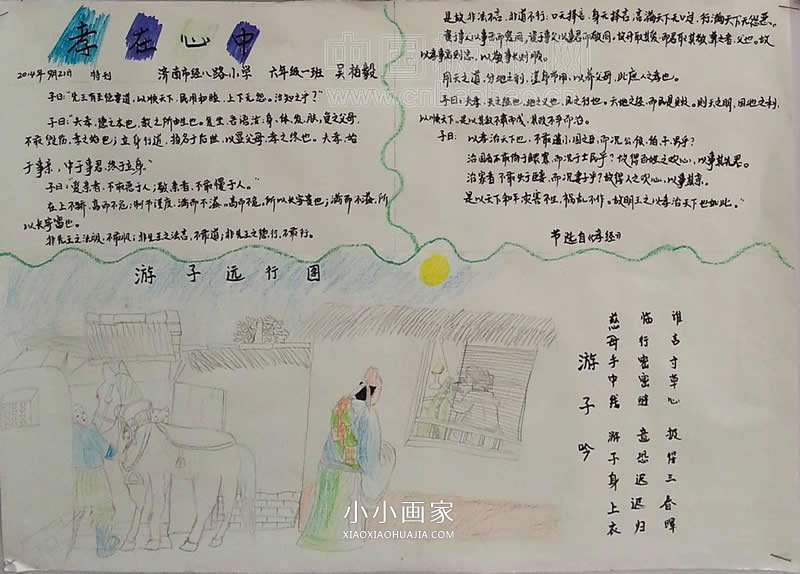 孝在心中
2014年9月21日 特刊 济南市经八路小学 六年级一班 吴柏毅
子曰:"先王有至德要道,以顺天下,民用和睦,上下无怨。汝知之乎?"
子曰:"夫孝,德之本也,教之所由生也。复坐,吾语汝:身、体、发、肤,受之父母,
不敢毁伤,孝之始也;立身行道,扬名于后世,以显父母,孝之终也。夫孝,始
于事亲,中于事君,终于立身"
子曰:"爱亲者,不敢恶于人;敬亲者,不敢慢于人。"
在上不骄,高而不危;制节谨度,满而不溢。高而不危,所以长守贵也;满而不溢,所
以长守富也。
非先王之法服,不敢服;非先王之法言,不敢道;非先王之德行,不敢行。
是故非法不言,非道不行;口无择言,身无择行;言满天下无口过,行满天下无怨恶。
资于事父以事母而爱同,资于事父以事君而敬同,故母取其爱,而君取其敬,兼之者,父也。故
以孝事君则忠,以敬事长则顺。
用天之道,分地之利,谨身节用,以养父母,此庶人之孝也。
子曰:夫孝,天之经也,地之义也,民之行也。天地之经,而民是则之。则天之明,因地之利,
以顺天下。是以其教不肃而成,其政不严而治。
子曰:以孝治天下也,不敢遗小国之臣,而况公侯、伯子、男乎?
治国者不敢侮于鳏寡,而况于士民乎?故得百姓之欢心,以事其先君。
治家者不敢失于臣妾,而况妻子乎?故得人之欢心,以事其亲。
是以天下和平,灾害不生,祸乱不作。故明王之以孝治天下也如此。"
节选自《孝经》
游子远行图
游子吟
慈母手中线 游子身上衣
临行密密缝 意恐迟迟归
谁言寸草心 报得三春晖
小小画家
XIAOXIAOHUAJIA.COM